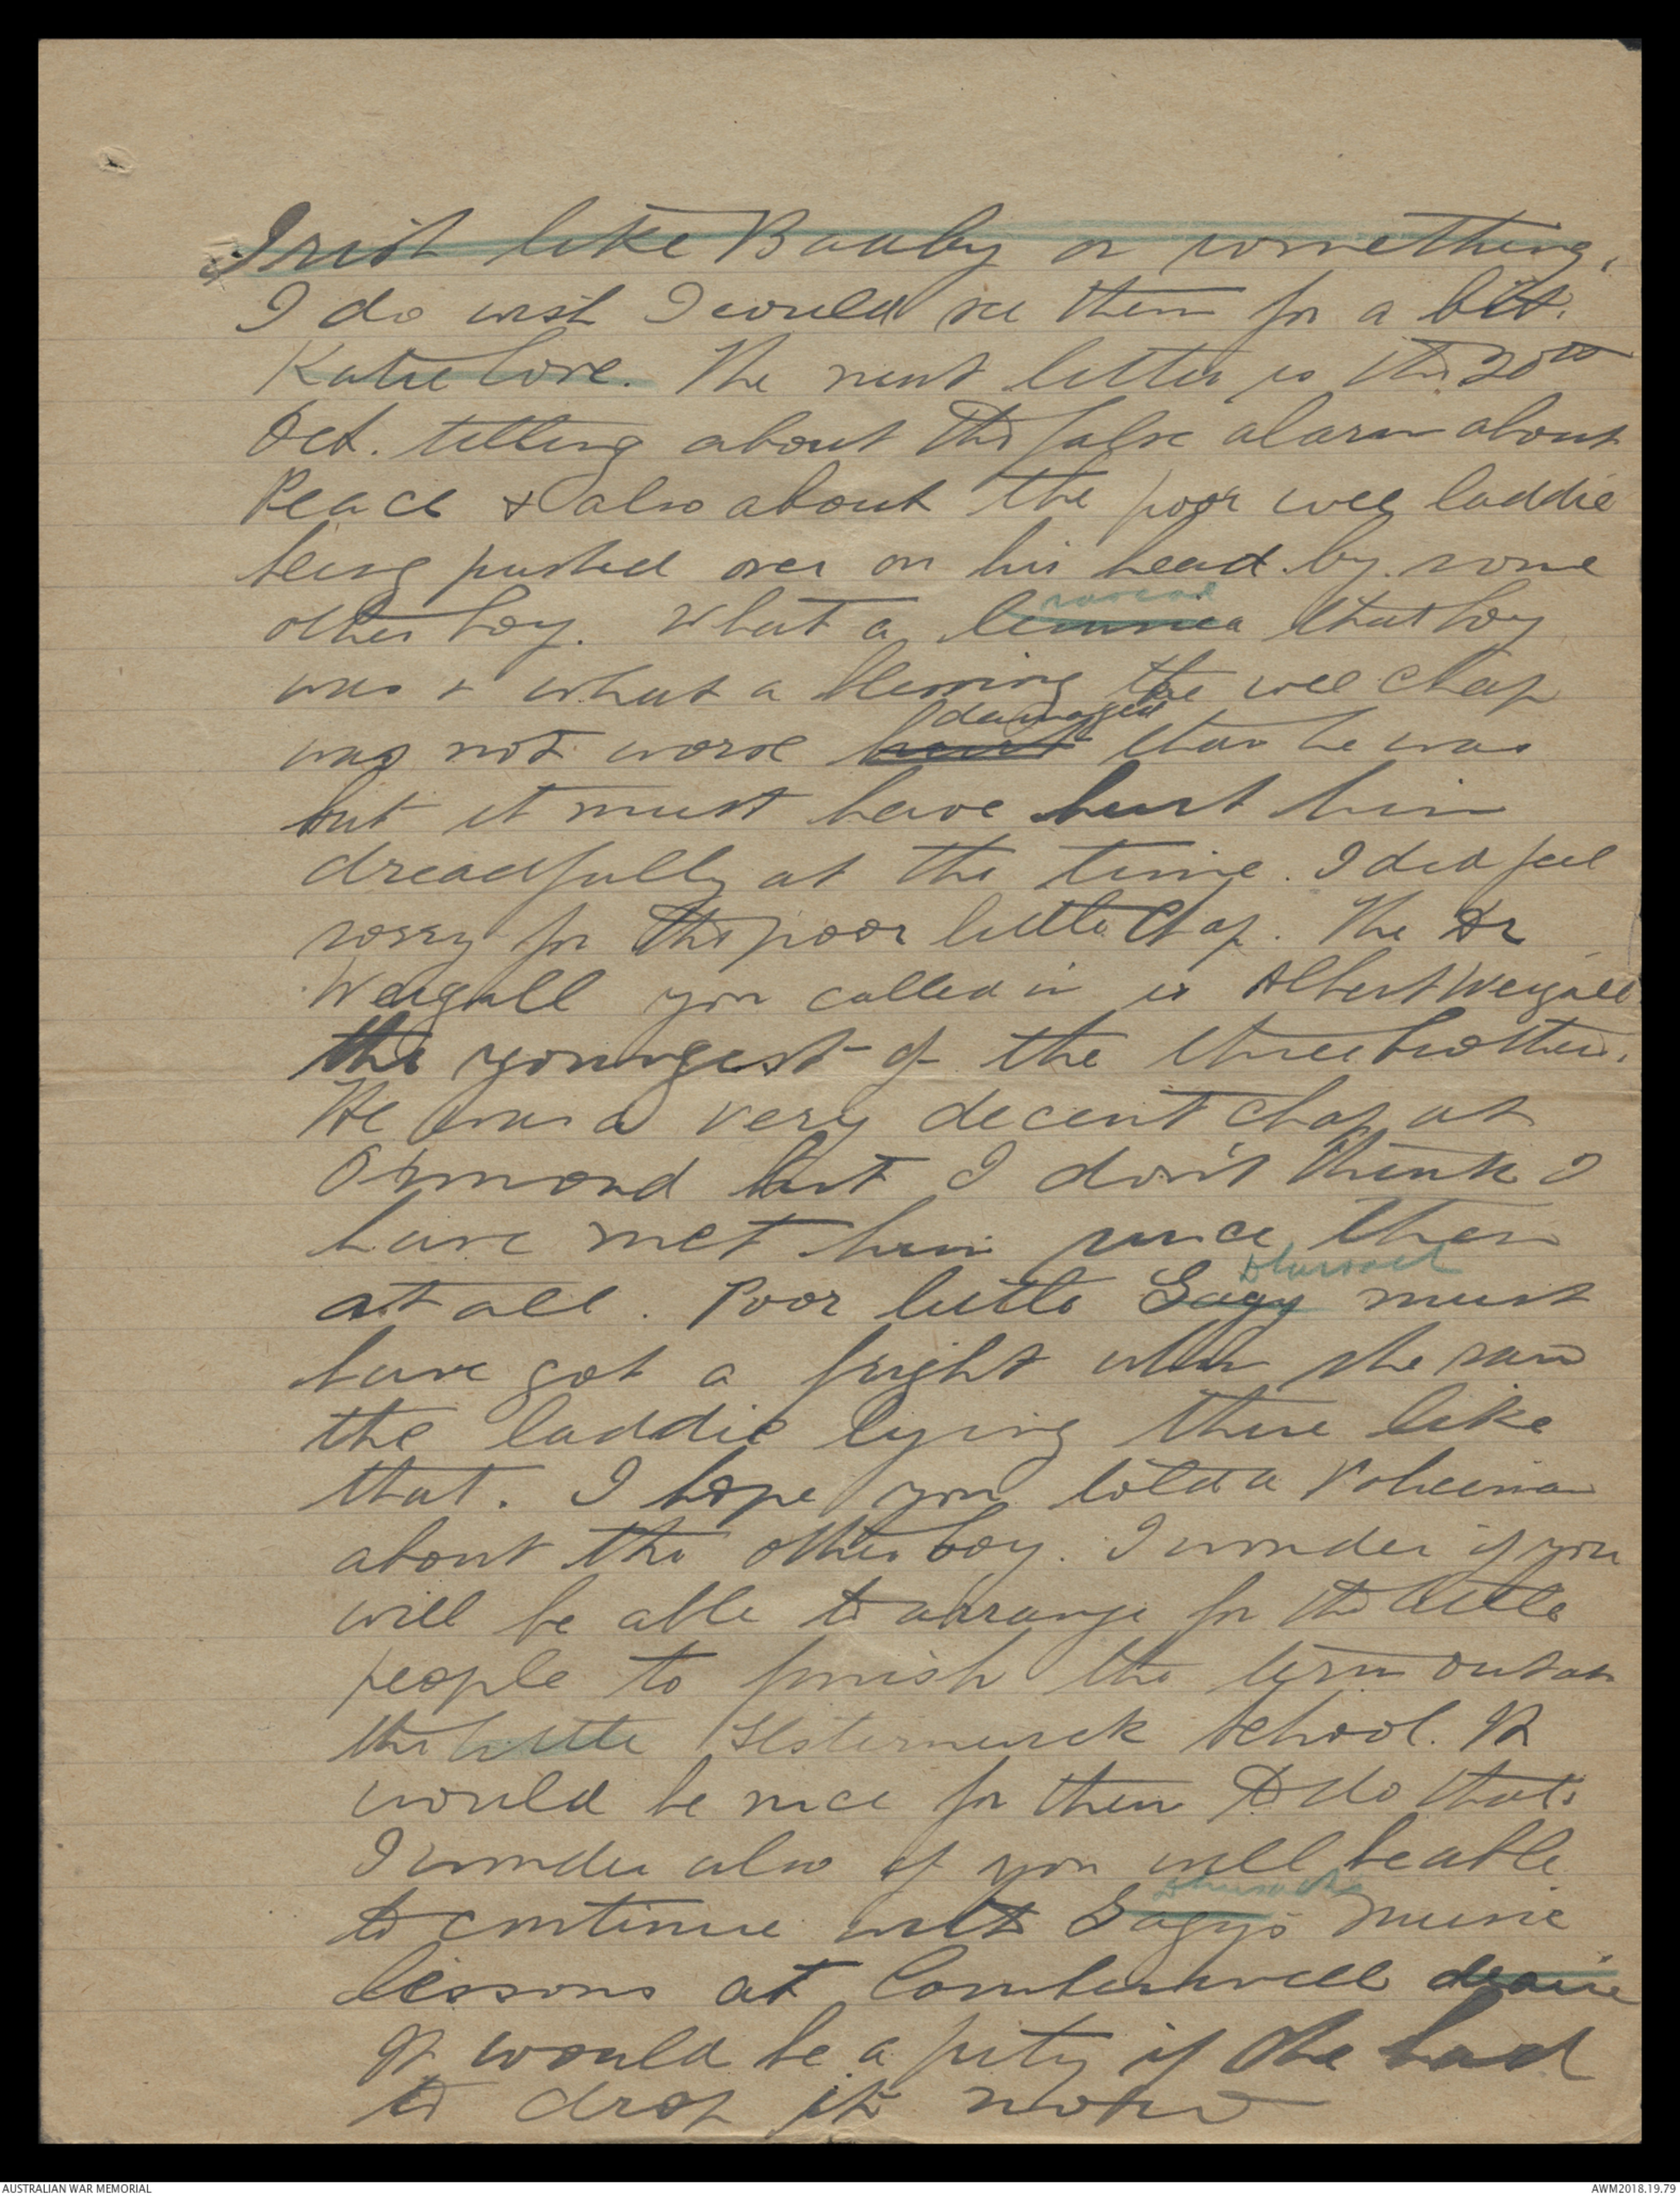 Irish like Bawby or something,
I do wish I could see them for a bit.
Katie love. The next letter is the 20th
Oct. telling about the false alarm about
Peace & also about the poor wee laddie
being pushed over on his head by some
rascal
other boy. What a that boy
was & what a blessing the wee chap
damaged
was not worse hurt than he was
but it must have hurt him
dreadfully at the time. I did feel
sorry for the poor little chap. The Dr
Weigall you called in is Albert Weigall
the youngest of the three brothers.
He was a very decent chap at
Ormond but I don't think I
have met him since then
at all. Poor little Gagy must
have got a fright when she saw
the laddie lying there like
that. I hope you told a Policeman
about the other boy. I wonder if you
will be able to arrange for the little
people to finish the term out at
the little Elsternwick School. It
would be nice for them to do that.
I wonder also if you will be able
to continue with Gagy's music
lessons at Camberwell dearie
It would be a pity if she had
to drop it now
AUSTRALIAN WAR MEMORIAL
AWM2018.19.79